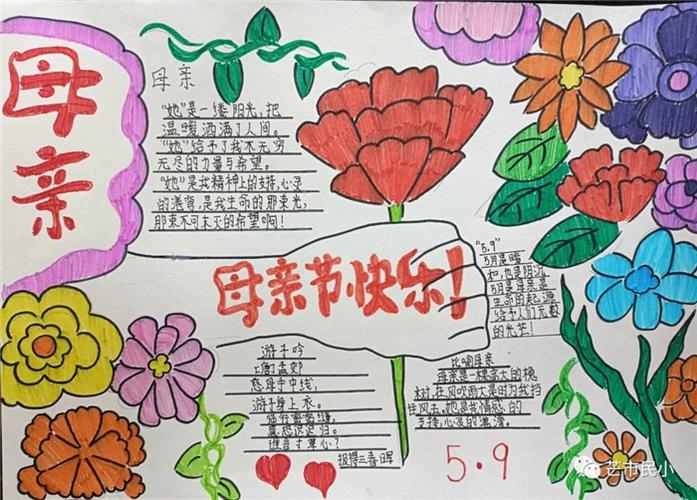 母亲
母亲
"她"是一缕阳光,把
温暖洒满了人间。
"她"给予了我不无穷
无尽的力量与希望。
"她"是我精神上的支持,心灵
的港湾,是我生命的那束光,
那束不可末灭的希望啊!
母亲节快乐!
"5.9"
5月是暖
和,也是阴沉
5月是母亲是
生命的起源
给予人们无数
的光芒!
游子吟
慈母手中线,
游子身上衣。
临行密密缝,
意恐迟迟归。
谁言寸草心?
报得三春晖
比喻母亲
母亲是一棵高大的槐
树,在风吹雨大是时为我挡
住风去。她是我情感的
支撑,心灵的港湾。
5.9
芒市民小